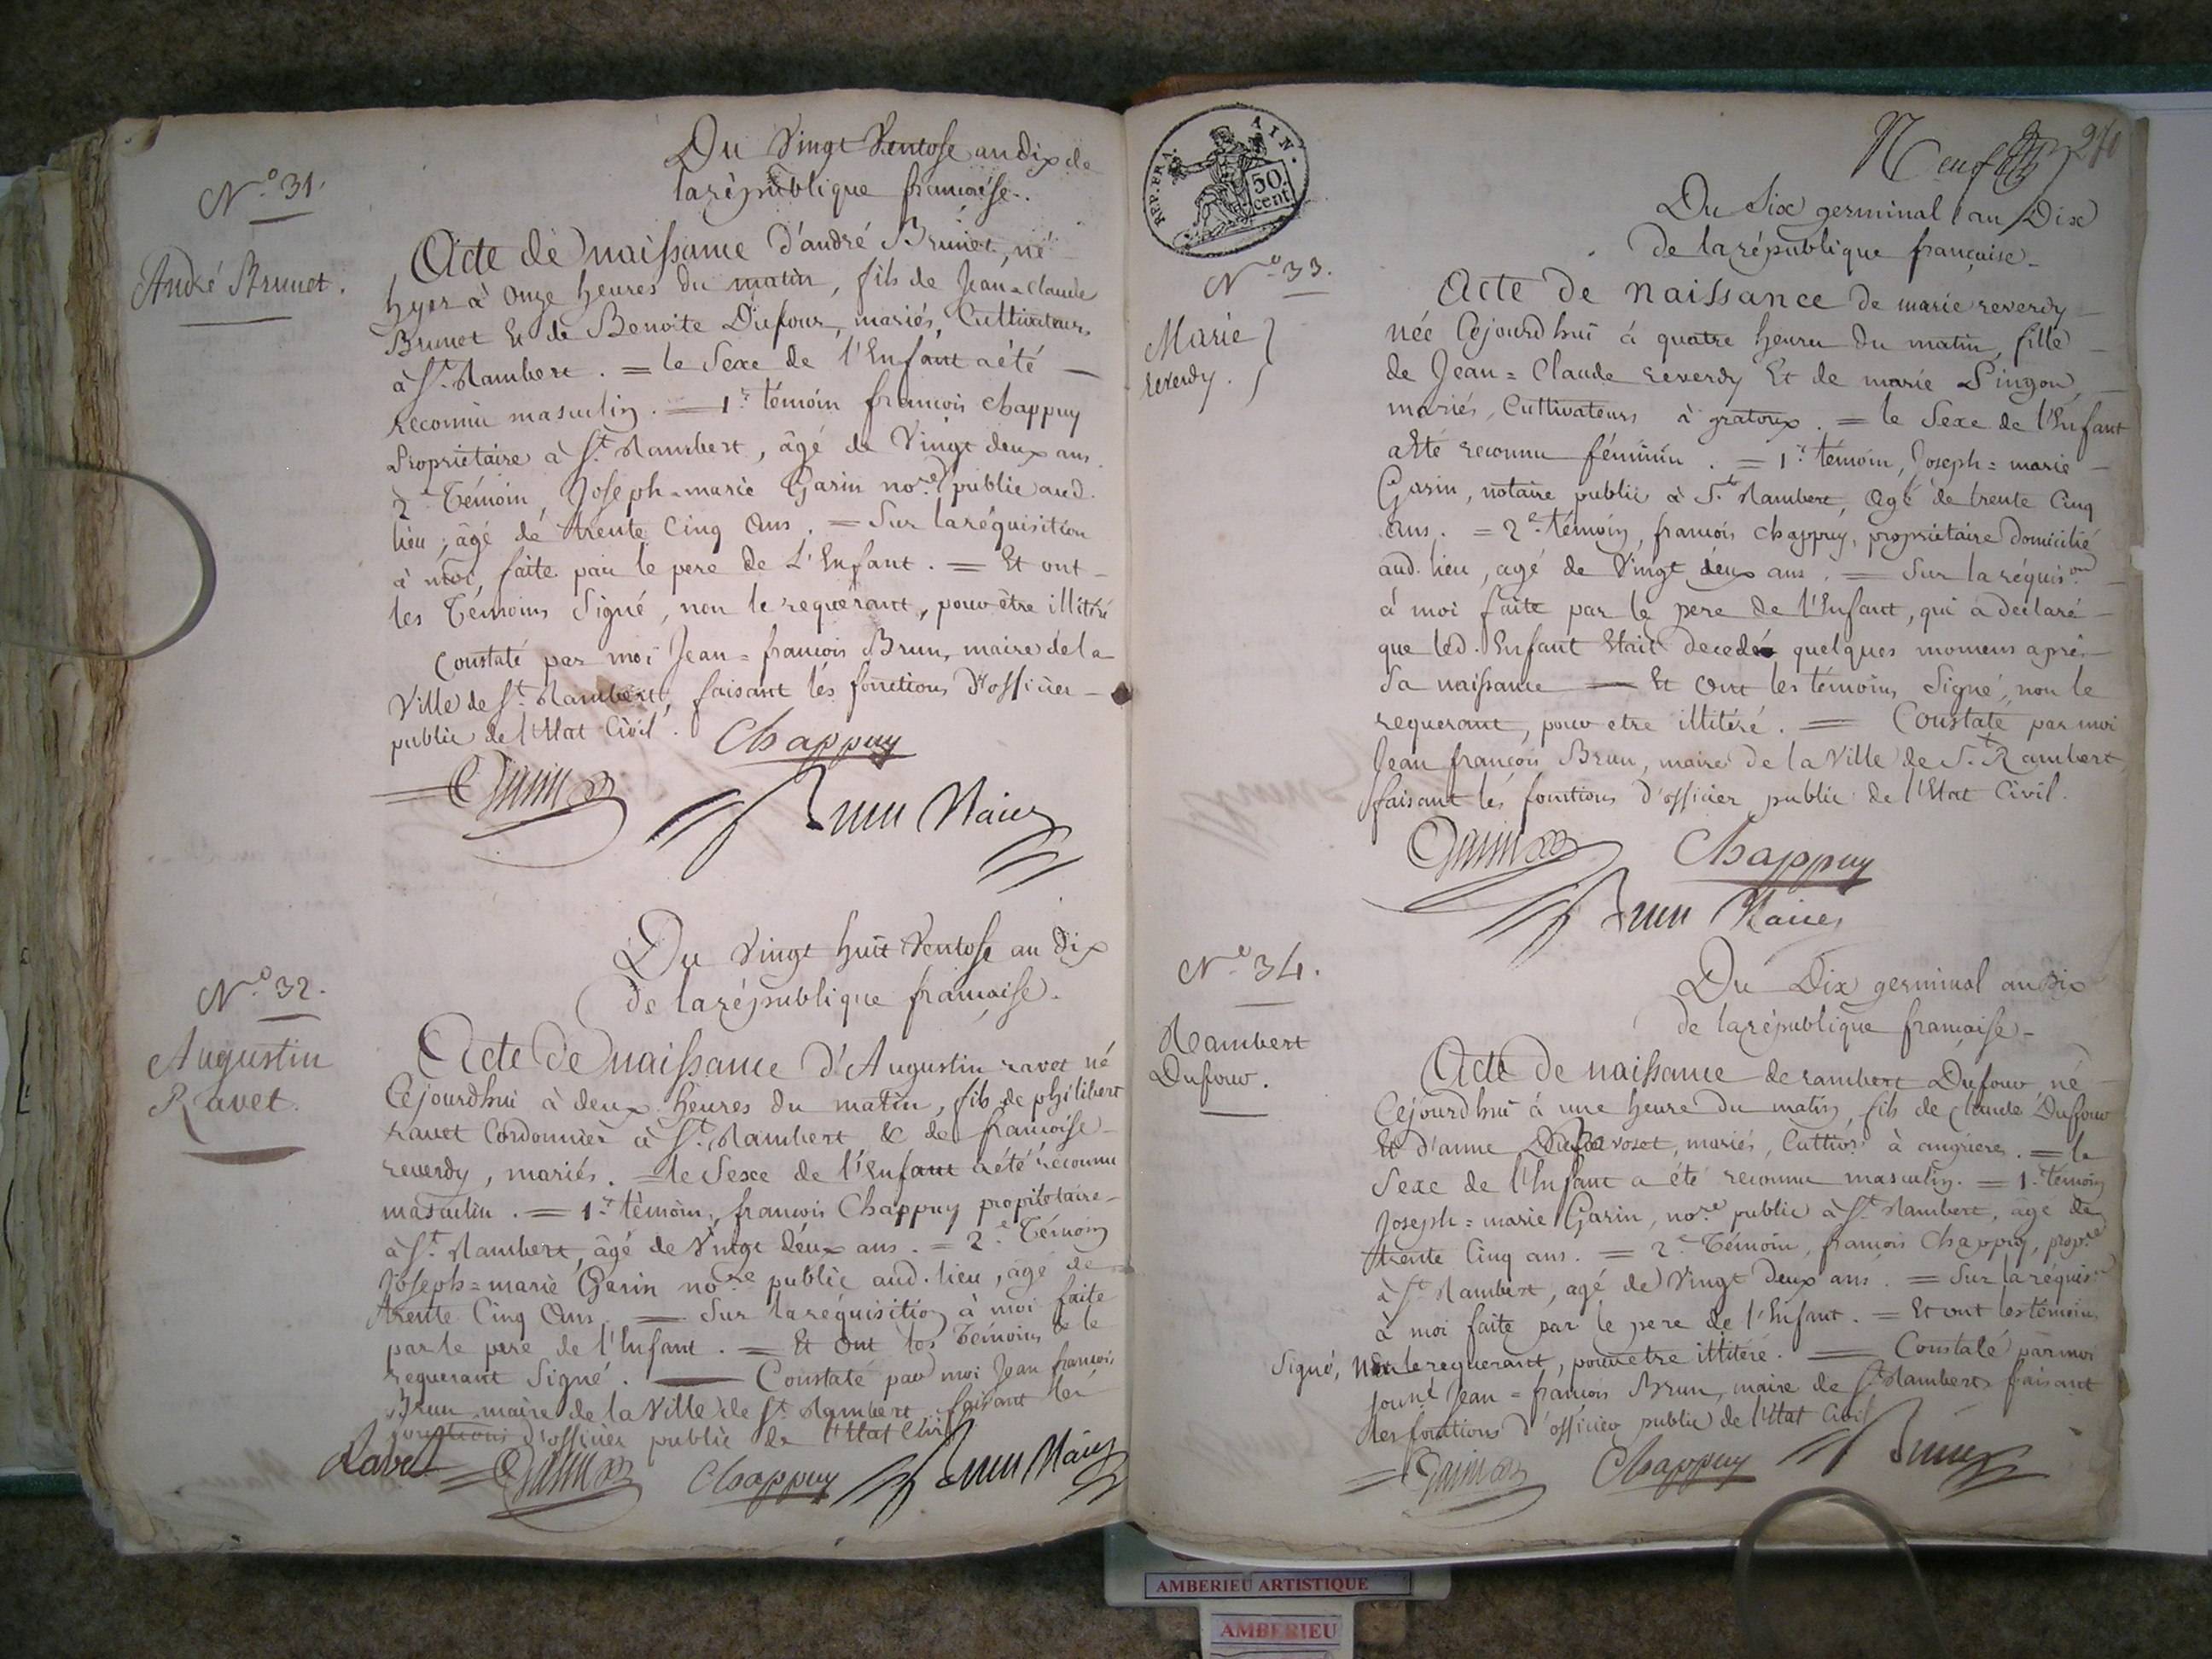 N.o 31.
André Brunet.
Du Vingt Ventose an dix de
la république francaise.
Acte de naissance d'andré Brunet, né
hyer à onze heures du matin, fils de Jean=claude
Brunet et de Benoite Dufour, mariés, Cultivateurs
à St. Rambert. = le Sexe de l'Enfant a été
reconnu masculin. = 1.r témoin francois chappuy
Propriétaire à St. Rambert, âgé de Vingt deux ans.
2.e Témoin, Joseph=marie Garin no.re public aud.
lieu, âgé de trente Cinq ans. = Sur la réquisition
à moi, faite par le pere de L'Enfant. = Et ont
les Témoins Signé, non le requerant, pour être illitéré
Constaté par moi Jean=francois Brun, maire de la
Ville de St. Rambert, faisant les fonctions d'officier
public de l'Etat Civil.
Chappuy
Garin
Brun Maire
N.o 32.
Augustin
Ravet.
Du Vingt huit Ventose an Dix
de la république francaise.
Acte de naissance d'Augustin ravet né
Cejourdhui à deux heures du matin, fils de philibert
ravet Cordonnier à St. Rambert & de francoise
reverdy, mariés. = le Sexe de l'Enfant a été reconnu
masculin. = 1.r témoin, francois Chappuy propriétaire
à St. Rambert, âgé de Vingt deux ans. = 2.e Témoin
Joseph=marie Garin no.re public aud. lieu, âgé de
trente Cinq Ans. = Sur la réquisition à moi faite
par le pere de l'Enfant. = Et ont les Témoins & le
requerant Signé. — Constaté par moi Jean francois
Brun maire de la Ville de St. Rambert faisant les
fonctions d'officier public de l'Etat Civil
Ravet Garin Chappuy Brun Maire
REP. FRA. AIN.
50
cent.
Neuf
Du Six germinal an Dix
de la république française
N.o 33.
Marie
reverdy.
Acte de naissance de marie reverdy
née Cejourdhui à quatre heures du matin, fille
de Jean=Claude reverdy Et de marie Pingon,
mariés, Cultivateurs à gratoux. = le Sexe de l'Enfant
a été reconnu féminin. = 1.r témoin, Joseph=marie
Garin, notaire public à St. Rambert, Agé de trente Cinq
ans. = 2.e témoin, francois chappuy, propriétaire domicilié
aud. lieu, agé de Vingt deux ans. = Sur la réquis.on
à moi faite par le pere de l'Enfant, qui a déclaré
que led. Enfant Etait decedé quelques momens après
Sa naissance — Et Ont les témoins Signé, non le
requerant, pour etre illitéré. = Constaté par moi
Jean françois Brun, maire de la Ville de St. Rambert,
faisant les fonctions d'officier public de l'Etat Civil.
Garin Chappuy
Brun Maire
N.o 34.
Rambert
Dufour.
Du Dix germinal an Dix
de la république francaise
Acte de naissance de rambert Dufour né
Cejourdhui à une heure du matin, fils de claude Dufour
Et d'anne mariés, Cultiv.rs à angrieres. = le
Sexe de l'Enfant a été reconnu masculin. = 1.r témoin
Joseph=marie Garin, no.re public à St. Rambert, âgé de
trente Cinq ans. = 2.e Témoin, francois Chappuy, prop.re
à St. Rambert, agé de Vingt Deux ans. = Sur la réquis.on
à moi faite par le pere de l'Enfant. = Et ont les témoins
Signé, Non le requerant, pour etre illitéré. = Constaté par moi
Jean=francois Brun, maire de St. Rambert faisant
les fonctions d'officier public de l'Etat Civil
Garin Chappuy Brun
AMBERIEU ARTISTIQUE
AMBERIEU